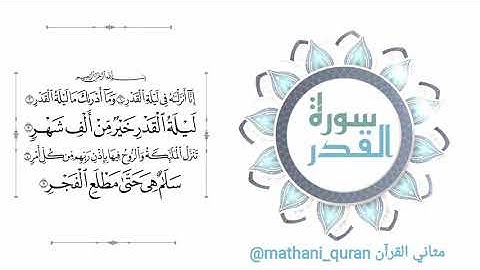 بسم الله الرحمن الرحيم
إِنَّا أَنزَلْنَاهُ فِي لَيْلَةِ الْقَدْرِ ١ وَمَا أَدْرَاكَ مَا لَيْلَةُ الْقَدْرِ ٢
لَيْلَةُ الْقَدْرِ خَيْرٌ مِّنْ أَلْفِ شَهْرٍ ٣
تَنَزَّلُ الْمَلَائِكَةُ وَالرُّوحُ فِيهَا بِإِذْنِ رَبِّهِم مِّن كُلِّ أَمْرٍ ٤
سَلَامٌ هِيَ حَتَّىٰ مَطْلَعِ الْفَجْرِ ٥
سورة
القدر
مثاني القرآن @mathani_quran